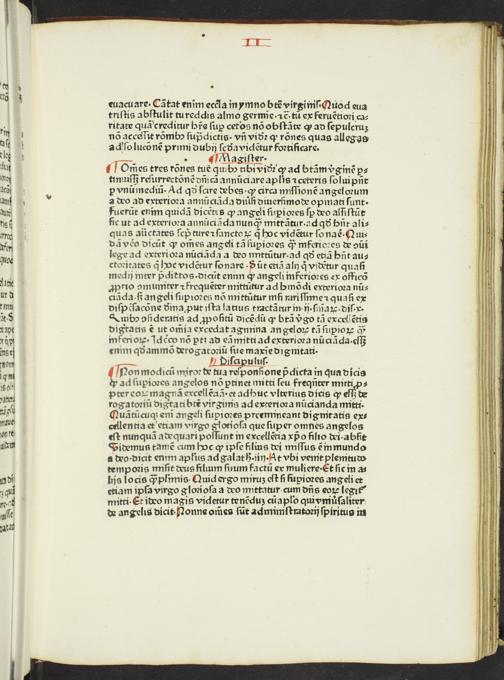 II
evacuare. Cātat enim eccl̄a in ymno btē virginis. Quod eva
tristis abstulit tu reddis almo germine. ꝛc̄. tū ex feruētiori ca-
ritate quā creditur hr̄e sup ceťos nō obstāte ꝙ ad sepulcrū
nō accessit rōnib⁹ sup̄dictis. vn̄ vidr̄ ꝙ rōnes quas allegas
ad solucōnē primi dubij scḋa vidēťur fortificare.
Magister.
Om̄es tres rōnes tue quib⁹ tibi vidr̄ ꝙ ad btām v̓ginē p̱-
tinuiſſ̓ resurrectōnē dn̄icā annūciare apl̄is ⁊ ceteris solui pn̄t
p̱ vnū mediū. Ad qḋ scire debes. ꝙ circa missionē angelorum
a deo ad exteriora annūciāda diuersi diuersimode opinati sunt.
fuerūt enim quidā dicētes ꝙ angeli supiores sp̱ deo assistūt
sic ut ad exteriora annūciāda nunqͫ mittātur. ad qḋ hn̄t ali
quas auctoritates
dā vero dicūt ꝙ om̄es angeli tā supiores qͫ inferiores de
lege ad exteriora nūciāda a deo mittūtur. ad qḋ etiā hn̄t au-
ctoritates q̄ hoc vidētur sonare. Sūt etiā alij q̄ vidētur quasi
medij inter p̄dictos. dicūt enim ꝙ angeli inferiores ex officō
ꝓprio ⁊ frequēter mittūtur ad hmōi exteriora nū-
ciāda. angeli supiores nō mittūtur nisi rarissime ⁊ quasi ex
dispēsacōne diuina, put ista latius tractātur in
Quib⁹ ꝯsideratis ad ꝓpositū dicēdū ꝙ btā v̓go tā excellētis
dignitatis ē ut om̄ia excedat agmina angeloꝝ tā supioꝝ qͫ
inferioꝝ. Ideo nō ad eam mitti ad exteriora nūciāda. eſſ̓
enim qḋāmō derogatoriū sue maxie dignitati.
Discipulus.
Non modicū miror de tua responsione p̄dicta in qua dicis
ꝙ ad supiores angelos nō p̱tinet mitti seu freqn̄ter mitti, p̱-
pter eoꝝ magnā excellēciā. et adhuc vlterius dicis ꝙ eſſ̓ de
rogatoriū dignitati btē virginis ad exteriora nūcianda mitti.
Quātūcūqꝫ eni angeli supiores premineant dignitatis ex-
cellentia et etiam virgo gloriosa que super omnes angelos
est nunquā adequari possunt in excellētia xp̄o filio dei. absit
Videmus tamē cum hoc ꝙ ipse filius dei missus ē in mundo
a deo. dicit enim apl̄us ad galath. iiij. At vbi venit plenitudo
temporis misit deus filium suum factū ex muliere. Et sic in a-
lijs locis qͫplimis. Quid ergo mirum est si supiores angeli et
etiam ipsa virgo gloriosa a deo mittatur cum dn̄s eoꝝ legiť
mitti. Et ideo magis videtur tenēdum
de angelis dicit. Nonne om̄es sūt administratorij spiritus in